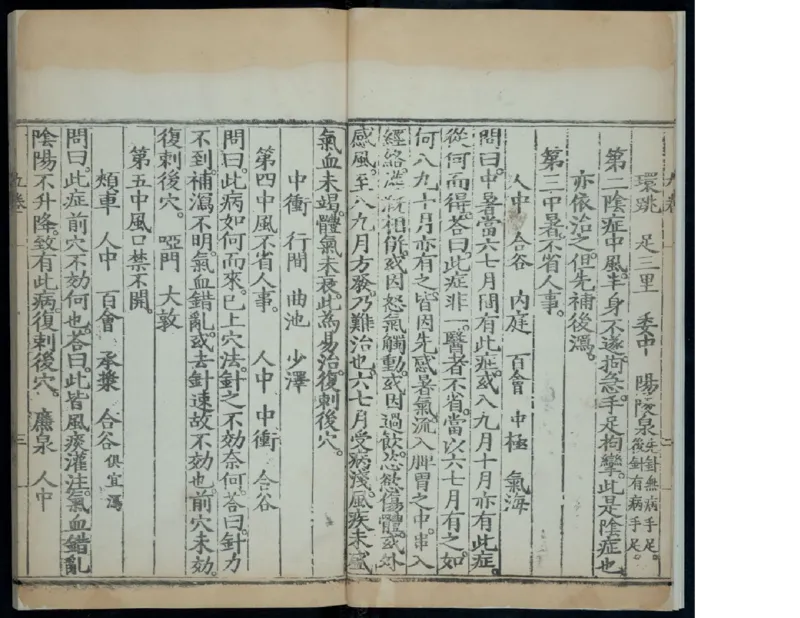 環跳 足三里 委中 陽陵泉先針無病手足。後針有病手足。
第二陰症中風。半身不遂。拘急。手足拘攣。此是陰症也
亦依治之。但先補後瀉。
第三中暑不省人事。
人中 合谷 内庭 百會 中極 氣海
問曰。中暑當六七月間有此症。或八九月十月亦有此症。
從何而得。答曰。此症非一。醫者不省。當以六七月有之。如
何八九十月亦有之。皆因先感暑氣。流入脾胃之中。串入
經絡。灌溉相併。或因怒氣觸動。或因過飲。恣慾傷體。或外
感風。至八九月方發。乃難治也。六七月受病淺。風疾未盛
氣血未竭。體氣未衰。此為易治。復刺後穴。
中衝 行間 曲池 少澤
第四中風不省人事。 人中 中衝 合谷
問曰。此病如何而來。已上穴法。針之不効奈何。答曰。針力
不到。補瀉不明。氣血錯亂。或去針速。故不効也。前穴未効。
復刺後穴。 啞門 大敦
第五中風口禁不開。
頰車 人中 百會 承漿 合谷俱宜瀉
問曰。此症前穴不効何也。答曰。此皆風痰灌注。氣血錯亂
陰陽不升降。致有此病。復刺後穴。 廉泉 人中
九卷
三